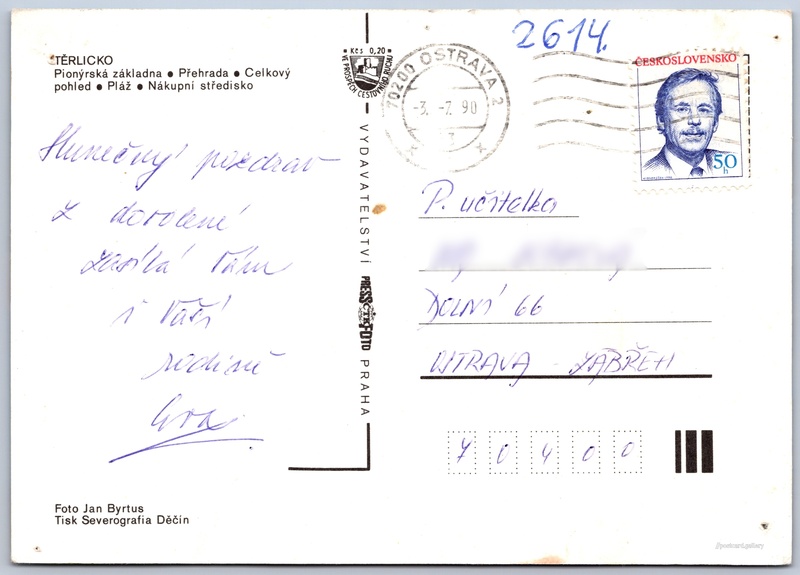 TĚRLICKO
Pionýrská základna ● Přehrada ● Celkový
pohled ● Pláž ● Nákupní středisko
Slunečný pozdrav
z dovolené
zasílá Vám
i Vaší
rodině
Kčs 0,20
VE PROSPĚCH CESTOVNÍHO RUCHU
VYDAVATELSTVÍ PRESSFOTO PRAHA
70200 OSTRAVA 2
-3.-7.90
2614.
ČESKOSLOVENSKO
50 h
P. učitelka
DOLNÍ 66
OSTRAVA - ZÁBŘEH
70400
Foto Jan Byrtus
Tisk Severografia Děčín
//postcard.gallery